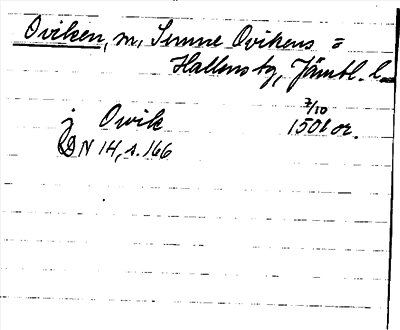 Oviken, sn, Sunne Ovikens o
Hallens tg, Jämtl. l.
7/10
j Owik 1501 or.
DN 14, s. 166